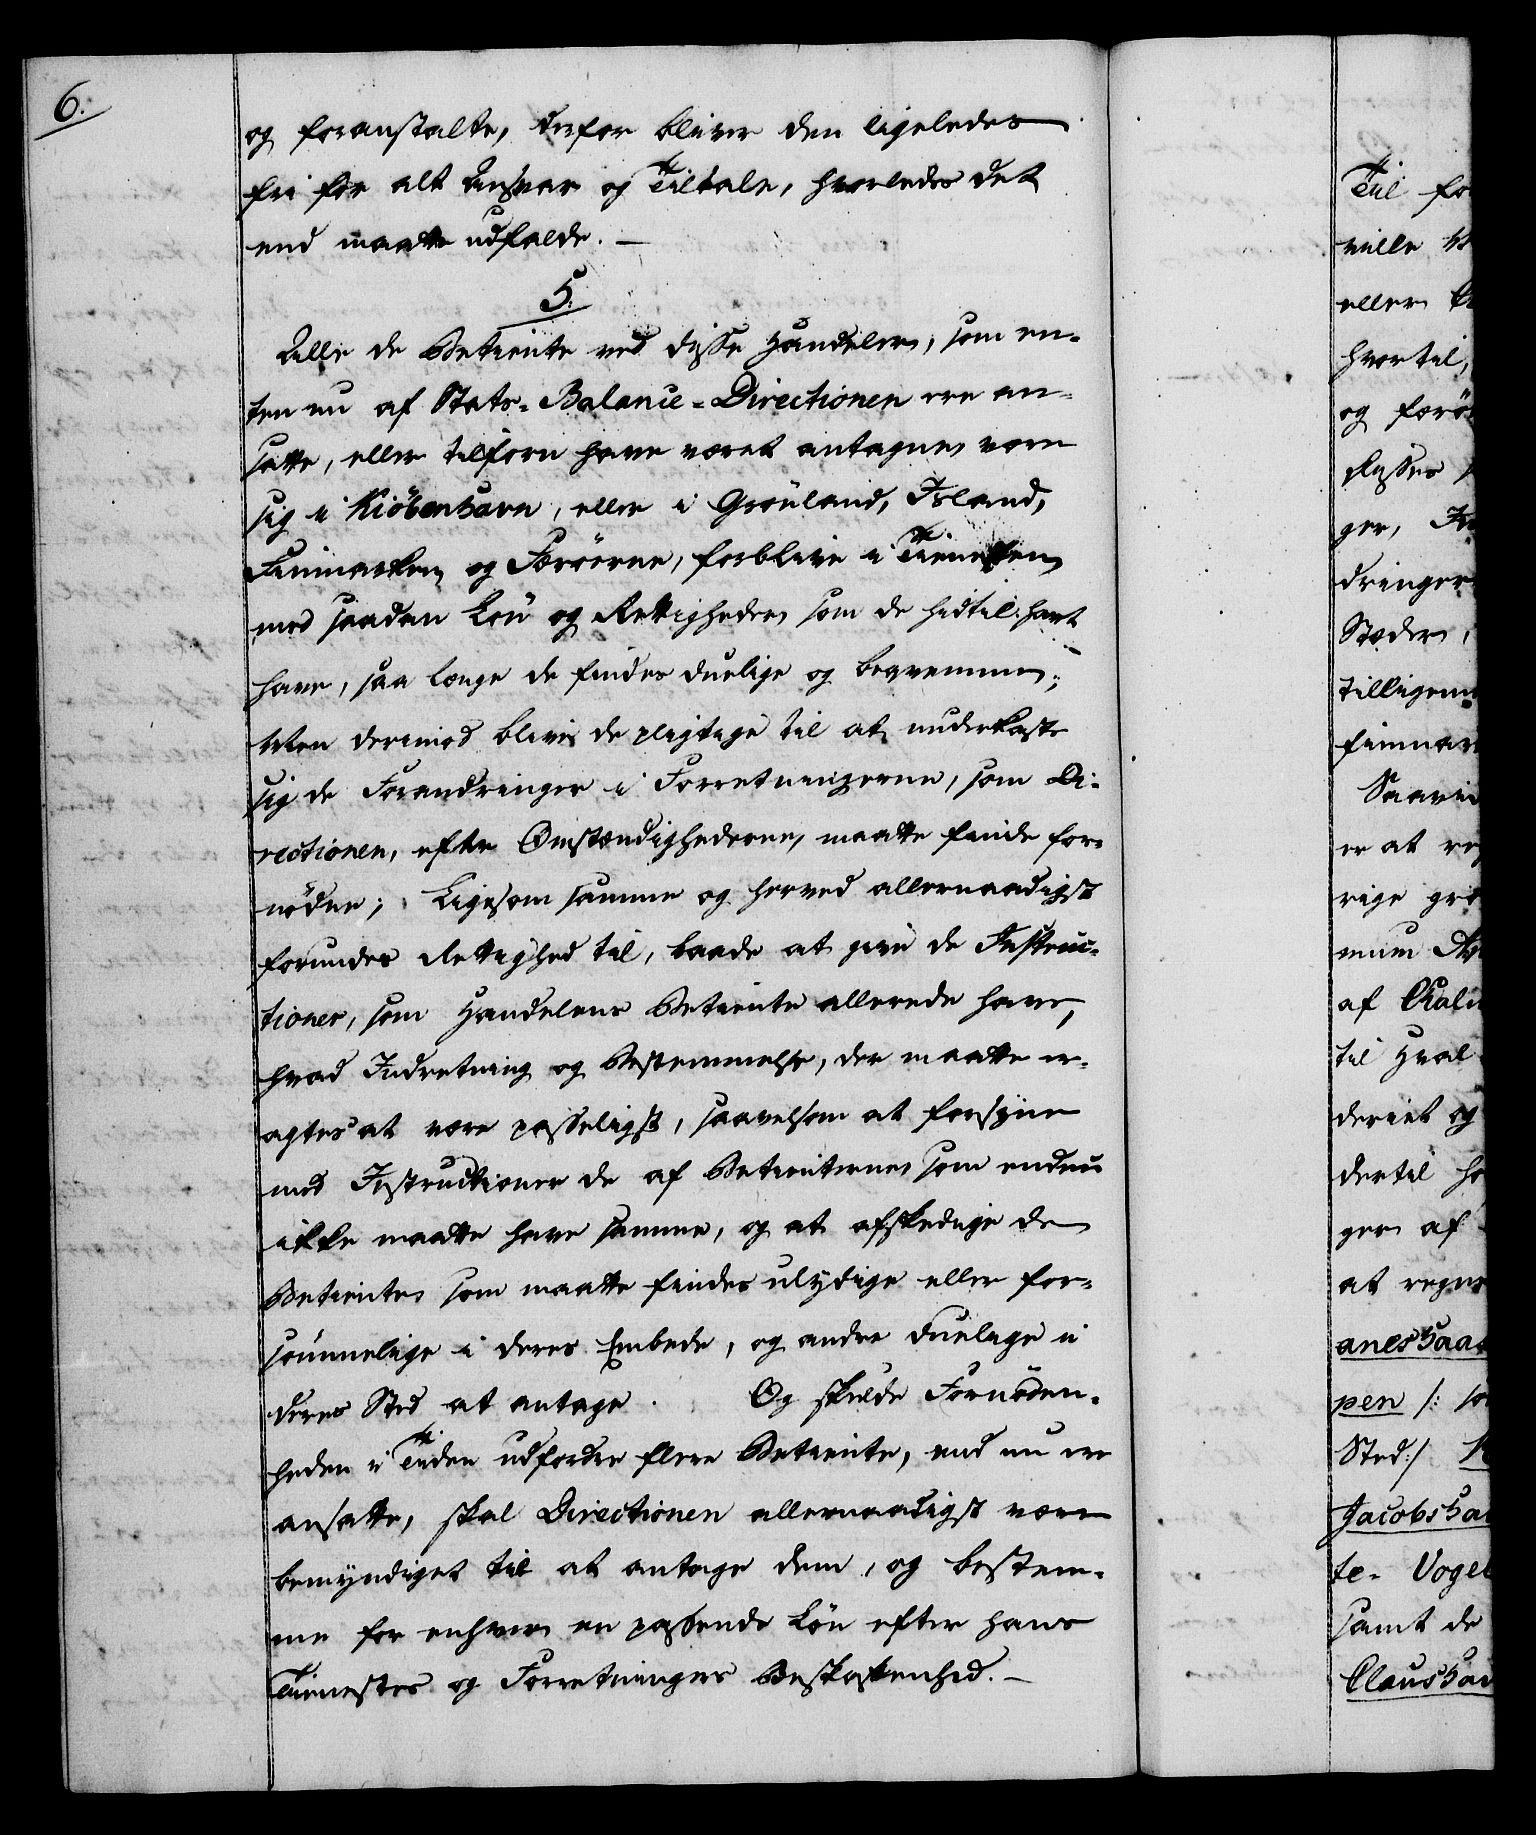 6.
og foranstalte, derfor bliver den ligeledes
fri for alt Ansvar og Tiltale, hvorledes det
end maatte udfalde. —
5.
Alle de Betiente ved disse Handeler, som en-
ten nu af Stats-Balance-Directionen ere an-
satte, eller tilforn have været antagne, være
sig i Kiöbenhavn, eller i Grönland, Island,
Finmarken og Færöerne, forblive i Tienesten
med saadan Lön og Rettigheder som de hidtil havt
have, saa længe de findes duelige og beqvemme;
Men derimod blive de pligtige til at underkaste
sig de Forandringer i Forretningerne, som Di-
rectionen, efter Omstændighederne, maatte finde for-
nödne; Ligesom samme og herved allernaadigst
forundes Rettighed til, baade at give de Instruc-
tioner, som Handelens Betiente allerede have,
hvad Indretning og Bestemmelse, der maatte er-
agtes at være passeligst, saavelsom at forsyne
med Instructioner de af Betienterne som endnu
ikke maatte have samme, og at afskedige de
Betiente, som maatte findes ulydige eller for-
sömmelige i deres Embede, og andre duelige i
deres Sted at antage. Og skulde Fornöden-
heden i Tiden udfordre flere Betiente, end nu ere
ansatte, skal Directionen allernaadigst være
bemyndiget til at antage dem, og bestem-
me for enhver en passende Lön efter hans
Tienestes og Forretningers Beskaffenhed. —
Til fo
ville
eller
hvortil,
og forö
Klasser
ger,
dringer
Stæder,
tilligem
finmar
Saavi
er at reg
rige grö
mum
af
til Hval
deriet og
dertil ha
ger af
at regne
aneshaab
pen /: so
Sted:/
Jacobsha
te- Vogel
samt de
Claushav